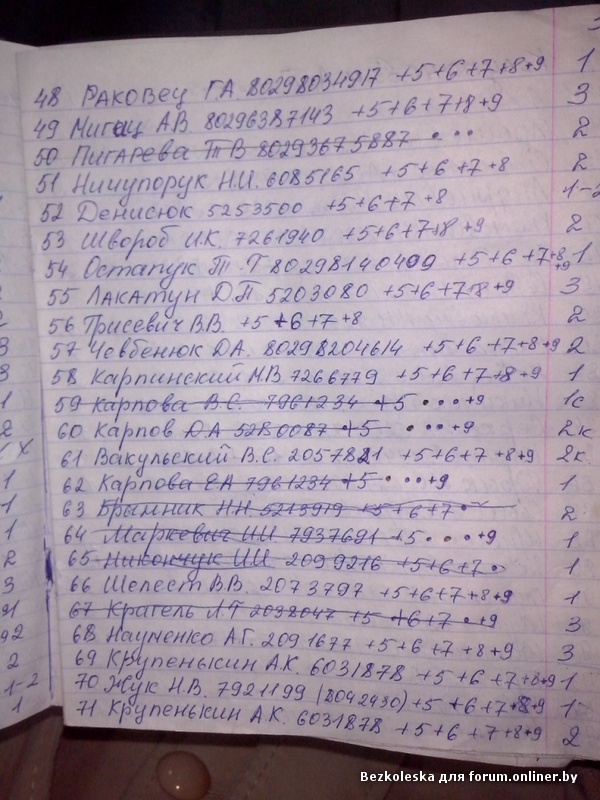 48 Раковец Г.А. 80298034917 +5+6+7+8+9 1
49 Мигац АВ 80296387143 +5+6+7+8+9 3
50 Пигарева Т В 80293675887 • • • 2
51 Ничупорук Н.И. 6085165 +5+6+7+8 2
52 Денисюк 5253500 +5+6+7+8 1-2
53 Швороб И.К. 7261940 +5+6+7+8 +9 2
54 Остапук Т. Г 80298140409 +5+6+7+8+9 1
55 Лакатун Д.П 5203080 +5+6+7+8+9 3
56 Трисевич В.В. +5+6+7+8 2
57 Човбенюк Д.А. 80298204614 +5+6+7+8+9 2
58 Карпинский М.В 7266779 +5+6+7+8+9 1
59 Карпова В.С. 7961234 +5 • • • +9 1с
60 Карпов Д.А 5280087 +5 • • • +9 2к
61 Вакульский В.С. 2057821 +5+6+7+8+9 2к
62 Карпова ЕА 7961234 +5 • • • +9 1
63 Брынник НН 5213919 +5+6+7 • 2
64 Маркевич ИИ 7937691 +5 • • • +9 1
65 Никончук И.И. 2099216 +5+6+7 • 1
66 Шелест В.В. 2073797 +5+6+7+8+9 1
67 Крагель Л.Т 2098047 +5+6+7 • +9 3
68 Науменко А.Г. 2091677 +5+6+7+8+9 3
69 Крупенысин А.К. 6031878 +5+6+7+8+9 1
70 Жук Н.В. 7921199 (8042930) +5+6+7+8+9 1
71 Крупенькин А.К. 6031878 +5+6+7+8+9 2
Bezkoleska для forum.onliner.by